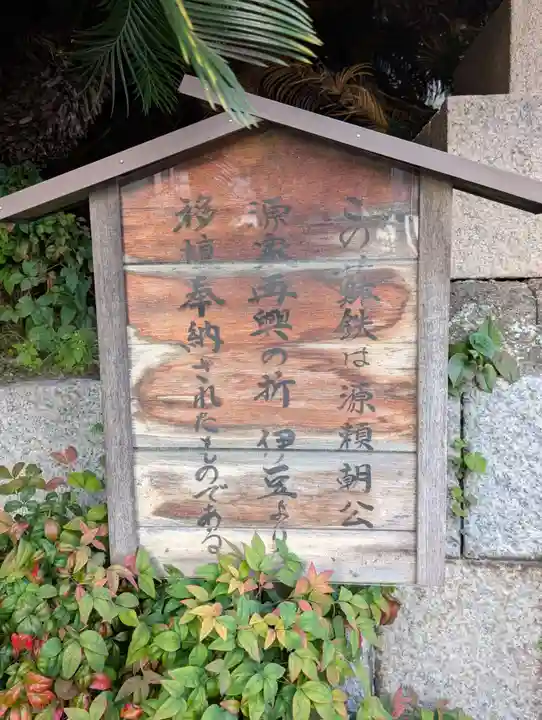 この蘇鉄は源頼朝公
源家再興の折伊豆より
移植奉納されたものである